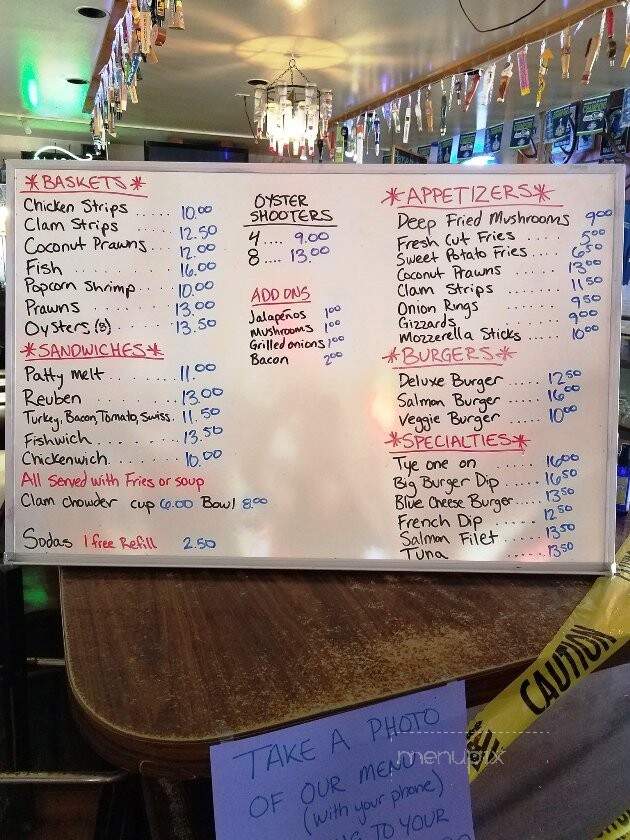 *BASKETS*
Chicken Strips ..... 10.00
Clam Strips ..... 12.50
Coconut Prawns ..... 12.00
Fish ..... 16.00
Popcorn Shrimp ..... 10.00
Prawns ..... 13.00
Oysters (8) ..... 13.50
*SANDWICHES*
Patty melt ..... 11.00
Reuben ..... 13.00
Turkey, Bacon, Tomato, Swiss. 11.50
Fishwich ..... 13.50
Chickenwich ..... 10.00
All served with Fries or soup
Clam chowder cup 6.00 Bowl 8.00
Sodas 1 free Refill 2.50
OYSTER
SHOOTERS
4 .... 9.00
8 .... 13.00
ADD ONS
Jalapeños 1.00
mushrooms 1.00
Grilled onions 1.00
Bacon 2.00
*APPETIZERS*
Deep Fried Mushrooms 9.00
Fresh Cut Fries .... 5.00
Sweet Potato Fries .... 6.50
Coconut Prawns .... 13.00
Clam Strips .... 11.50
Onion Rings .... 9.50
Gizzards .... 9.00
Mozzerella Sticks .... 10.00
*BURGERS*
Deluxe Burger ..... 12.50
Salmon Burger ..... 16.00
Veggie Burger ..... 10.00
*SPECIALTIES*
Tye one on ...... 16.00
Big Burger Dip ..... 16.50
Blue Cheese Burger .... 13.50
French Dip ...... 12.50
Salmon Filet .... 13.50
Tuna ..... 13.50
CAUTION
TAKE A PHOTO
OF OUR MENU
(with your phone)
TO YOUR
menupix